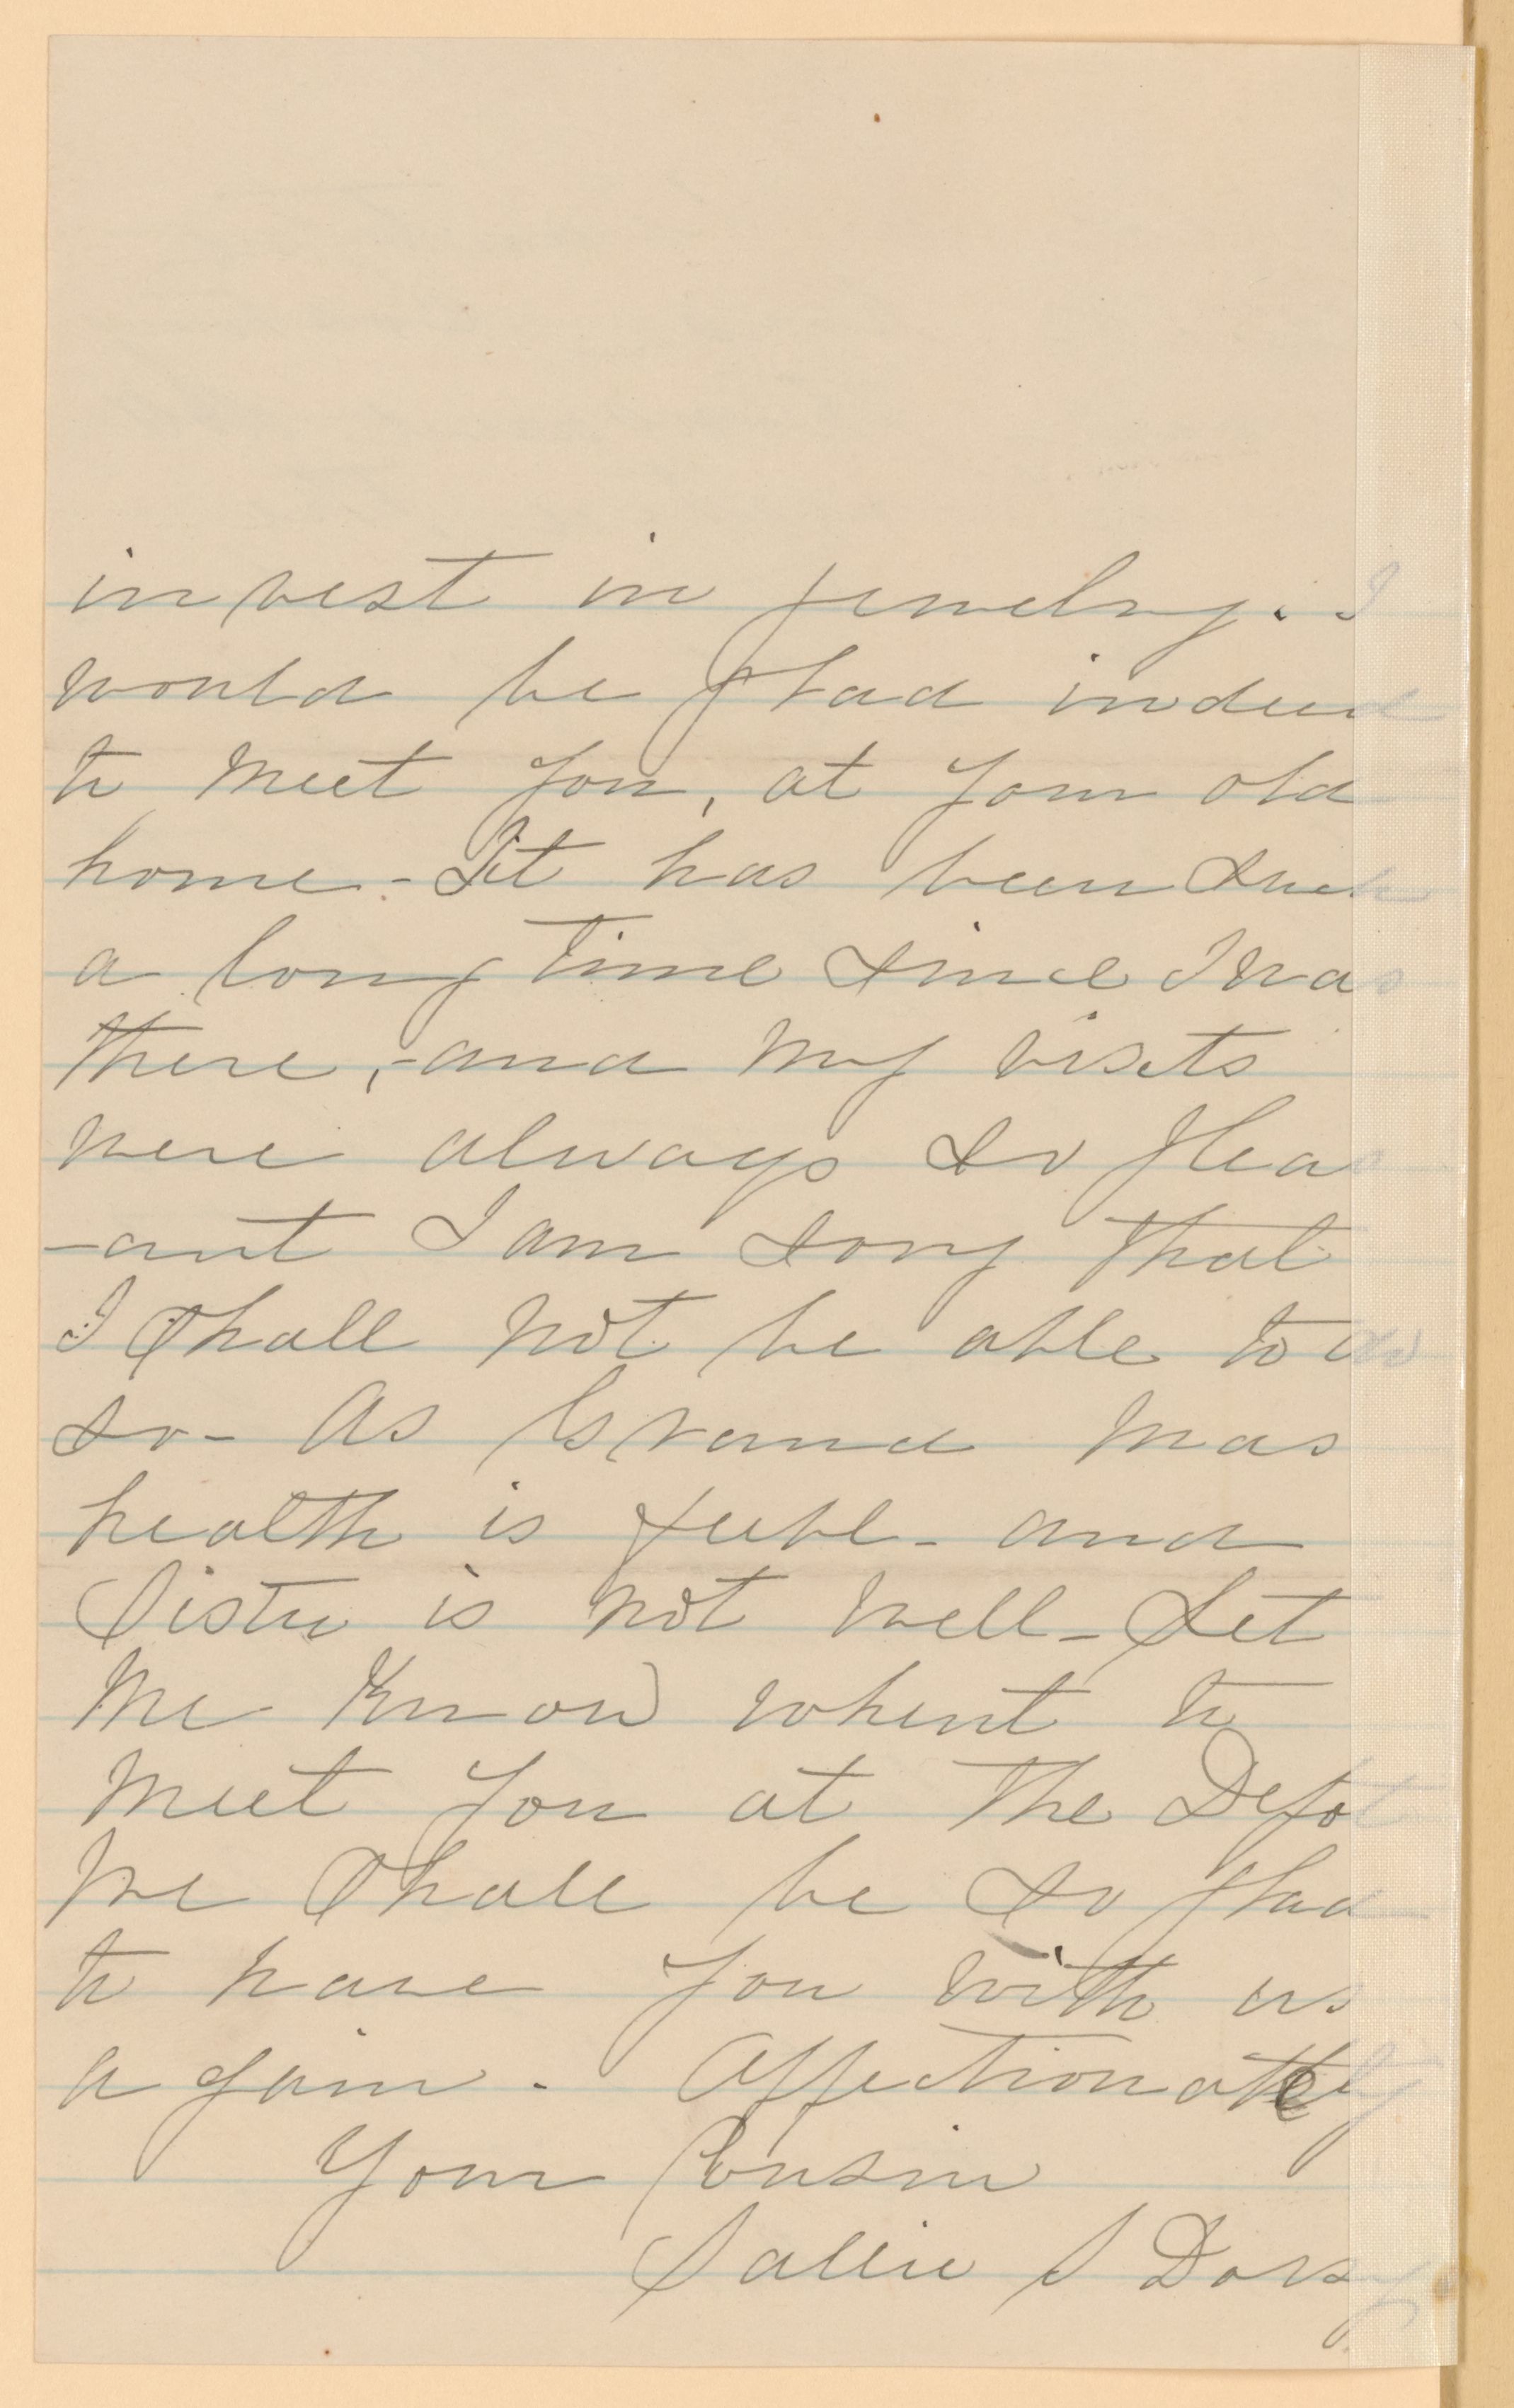 invest in jewelry. I
would be glad indeed
to meet you, at your old
home - It has been such
a long time since I was
there, - and my visits
were always so pleas
-ant I am sorry that
I shall not be able to do
so - As Grand mas
health is feebl - and
Sister is not well - Let
me know when to
meet you at the Depot
We shall be so glad
to have you with us
again. Affectionately
Your Cousin
Sallie S Dorsey